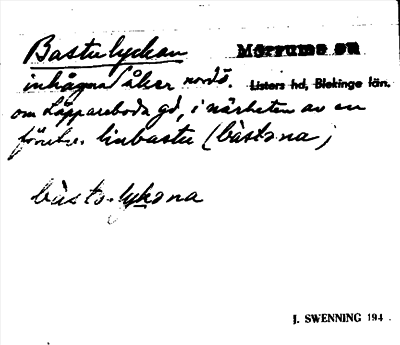 Bastulyckan Mörrums sn
inhägnad åker nordö. Listers hd, Blekinge län.
om Läppareboda gd, i närheten av en
linbastu (bàstəna)
bàsto-lykəna
J. SWENNING 194 .